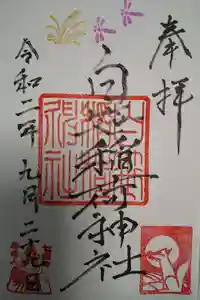 奉拝
白笹稲荷神社
令和二年九月二十日